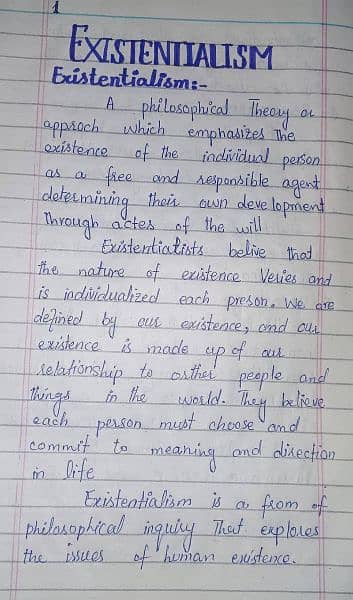 1
EXISTENTIALISM
Existentialism:-
A philosophical Theory or
approch which emphasizes The
existence of the individual person
as a free and responsible agent
determining their own development
Through actes of the will
Existentiatists belive that
the nature of existence Veries and
is individualized each preson. We are
defined by our existence, and our
existence is made up of our
relationship to orther people and
things in the world. They believe
each person must choose and
commit to meaning and direction
in life
Existentialism is a from of
philosophical inquiry That explores
the issues of human existence.